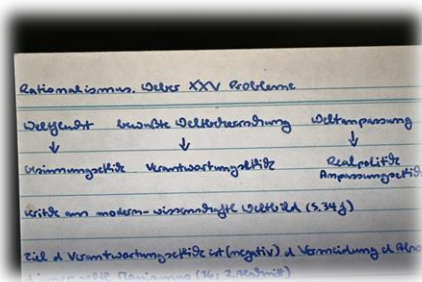 Rationalismus. Weber XXV Probleme
Weltflucht bewußte Weltbeherrschung Weltanpassung
↓ ↓ ↓
Gesinnungsethik Verantwortungsethik Realpolitik
Anpassungsethik
Kritik am modern-wissenschaftl Weltbild (S.34f)
Ziel d Verantwortungsethik ist (negativ) d Vermeidung d